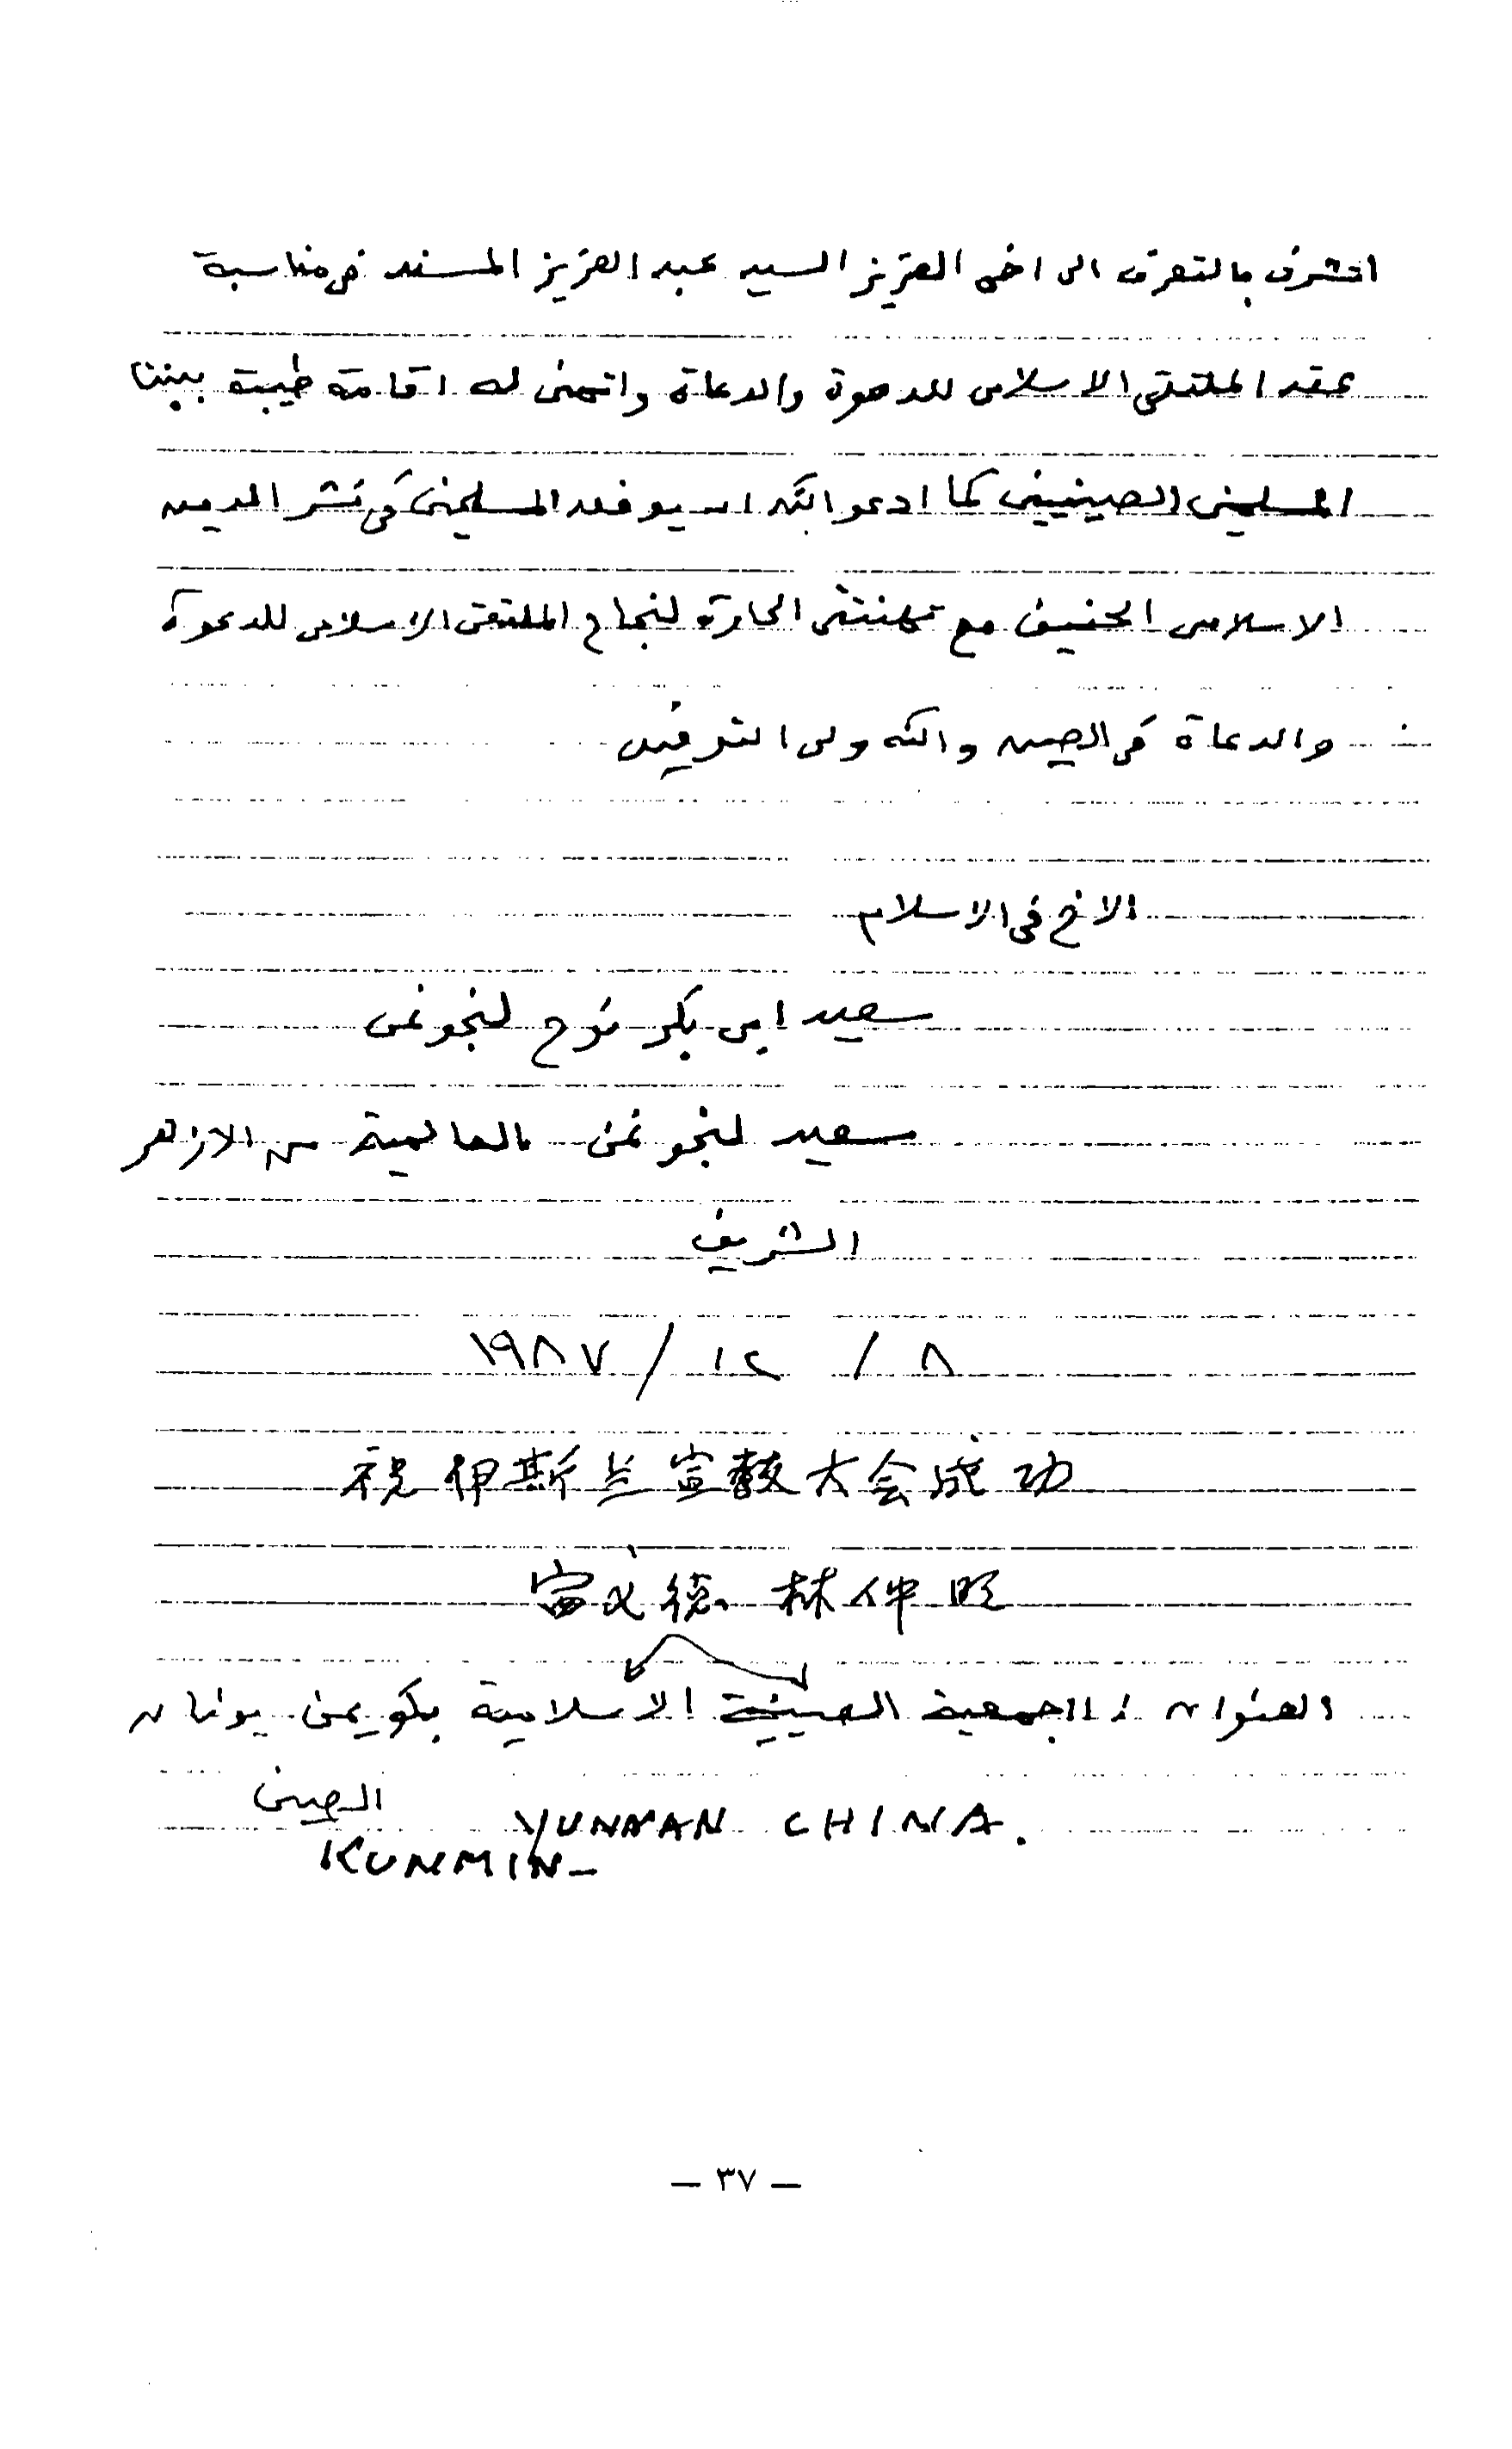 اتشرف بالتعرف الى اخى العزيز السيد عبد العزيز المسند فى مناسبة
عقد الملتقى الاسلامى للدعوة والدعاة واتمنى له اقامة طيبة بيننا
المسلمين الصينيين كما ادعو الله ان يوفق المسلمين فى نشر الدين
الاسلامى الحنيف مع تهنئتى الحارة لنجاح الملتقى الاسلامى للدعوة
والدعاة فى الصين والله ولى التوفيق
الاخ فى الاسلام
سعيد ابى بكر نوح لنجونمى
سعيد لنجونمى بالعالمية من الازهر
الشريف
٨ / ١٢ / ١٩٨٧
祝伊斯兰宣教大会成功
林仲明
العنوان : الجمعية الصينية الاسلامية بكويمن يونان
الصين
YUNNAN CHINA.
KUNMIN-
— ٣٧ —